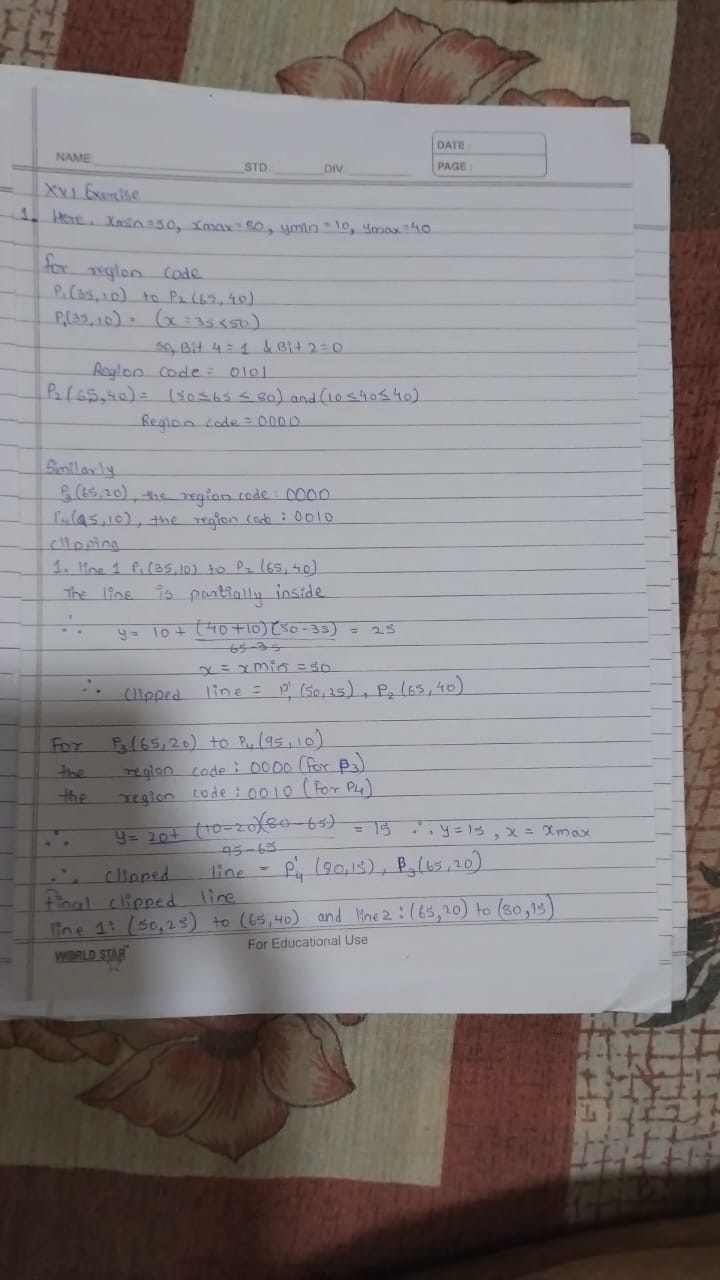 NAME STD DIV
DATE :
PAGE :
XVI Exercise
1. Here, xmin=50, xmax=80, ymin=10, ymax=40
for region code
P₁(35,10) to P₂(65,40)
P₁(35,10) = (x=35<50)
so, Bit 4=1 & Bit 2=0
Region code = 0101
P₂(65,40) = (50≤65≤80) and (10≤40≤40)
Region code = 0000
Similarly
P₃(65,20), the region code : 0000
P₄(95,10), the region code : 0010
clipping
1. line 1 P₁(35,10) to P₂(65,40)
The line is partially inside
∴ y = 10 + (40+10)(50-35) = 25
65-35
x = xmin = 50
∴ clipped line = P₁'(50,25), P₂(65,40)
For P₃(65,20) to P₄(95,10)
the region code : 0000 (for P₃)
the region code : 0010 (for P₄)
∴ y = 20+ (10-20)(80-65) = 15 ∴ y=15, x = xmax
95-65
∴ clipped line = P₄'(80,15), P₃(65,20)
final clipped line
line 1: (50,25) to (65,40) and line 2: (65,20) to (80,15)
WORLD STAR For Educational Use